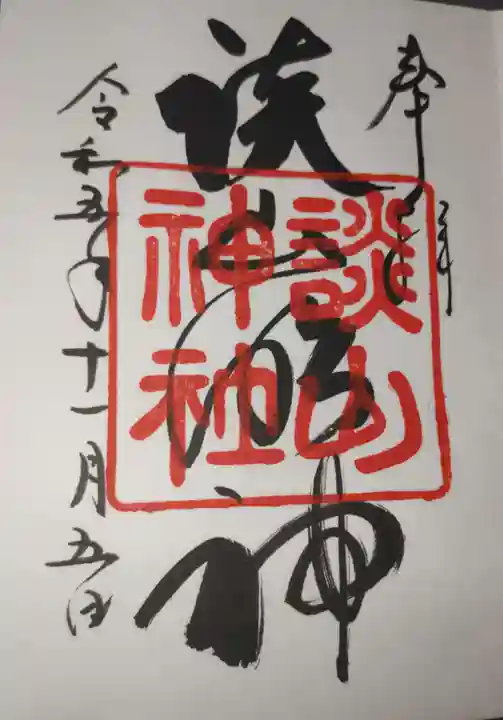 奉拝
談山明神
談山神社
令和五年十一月五日